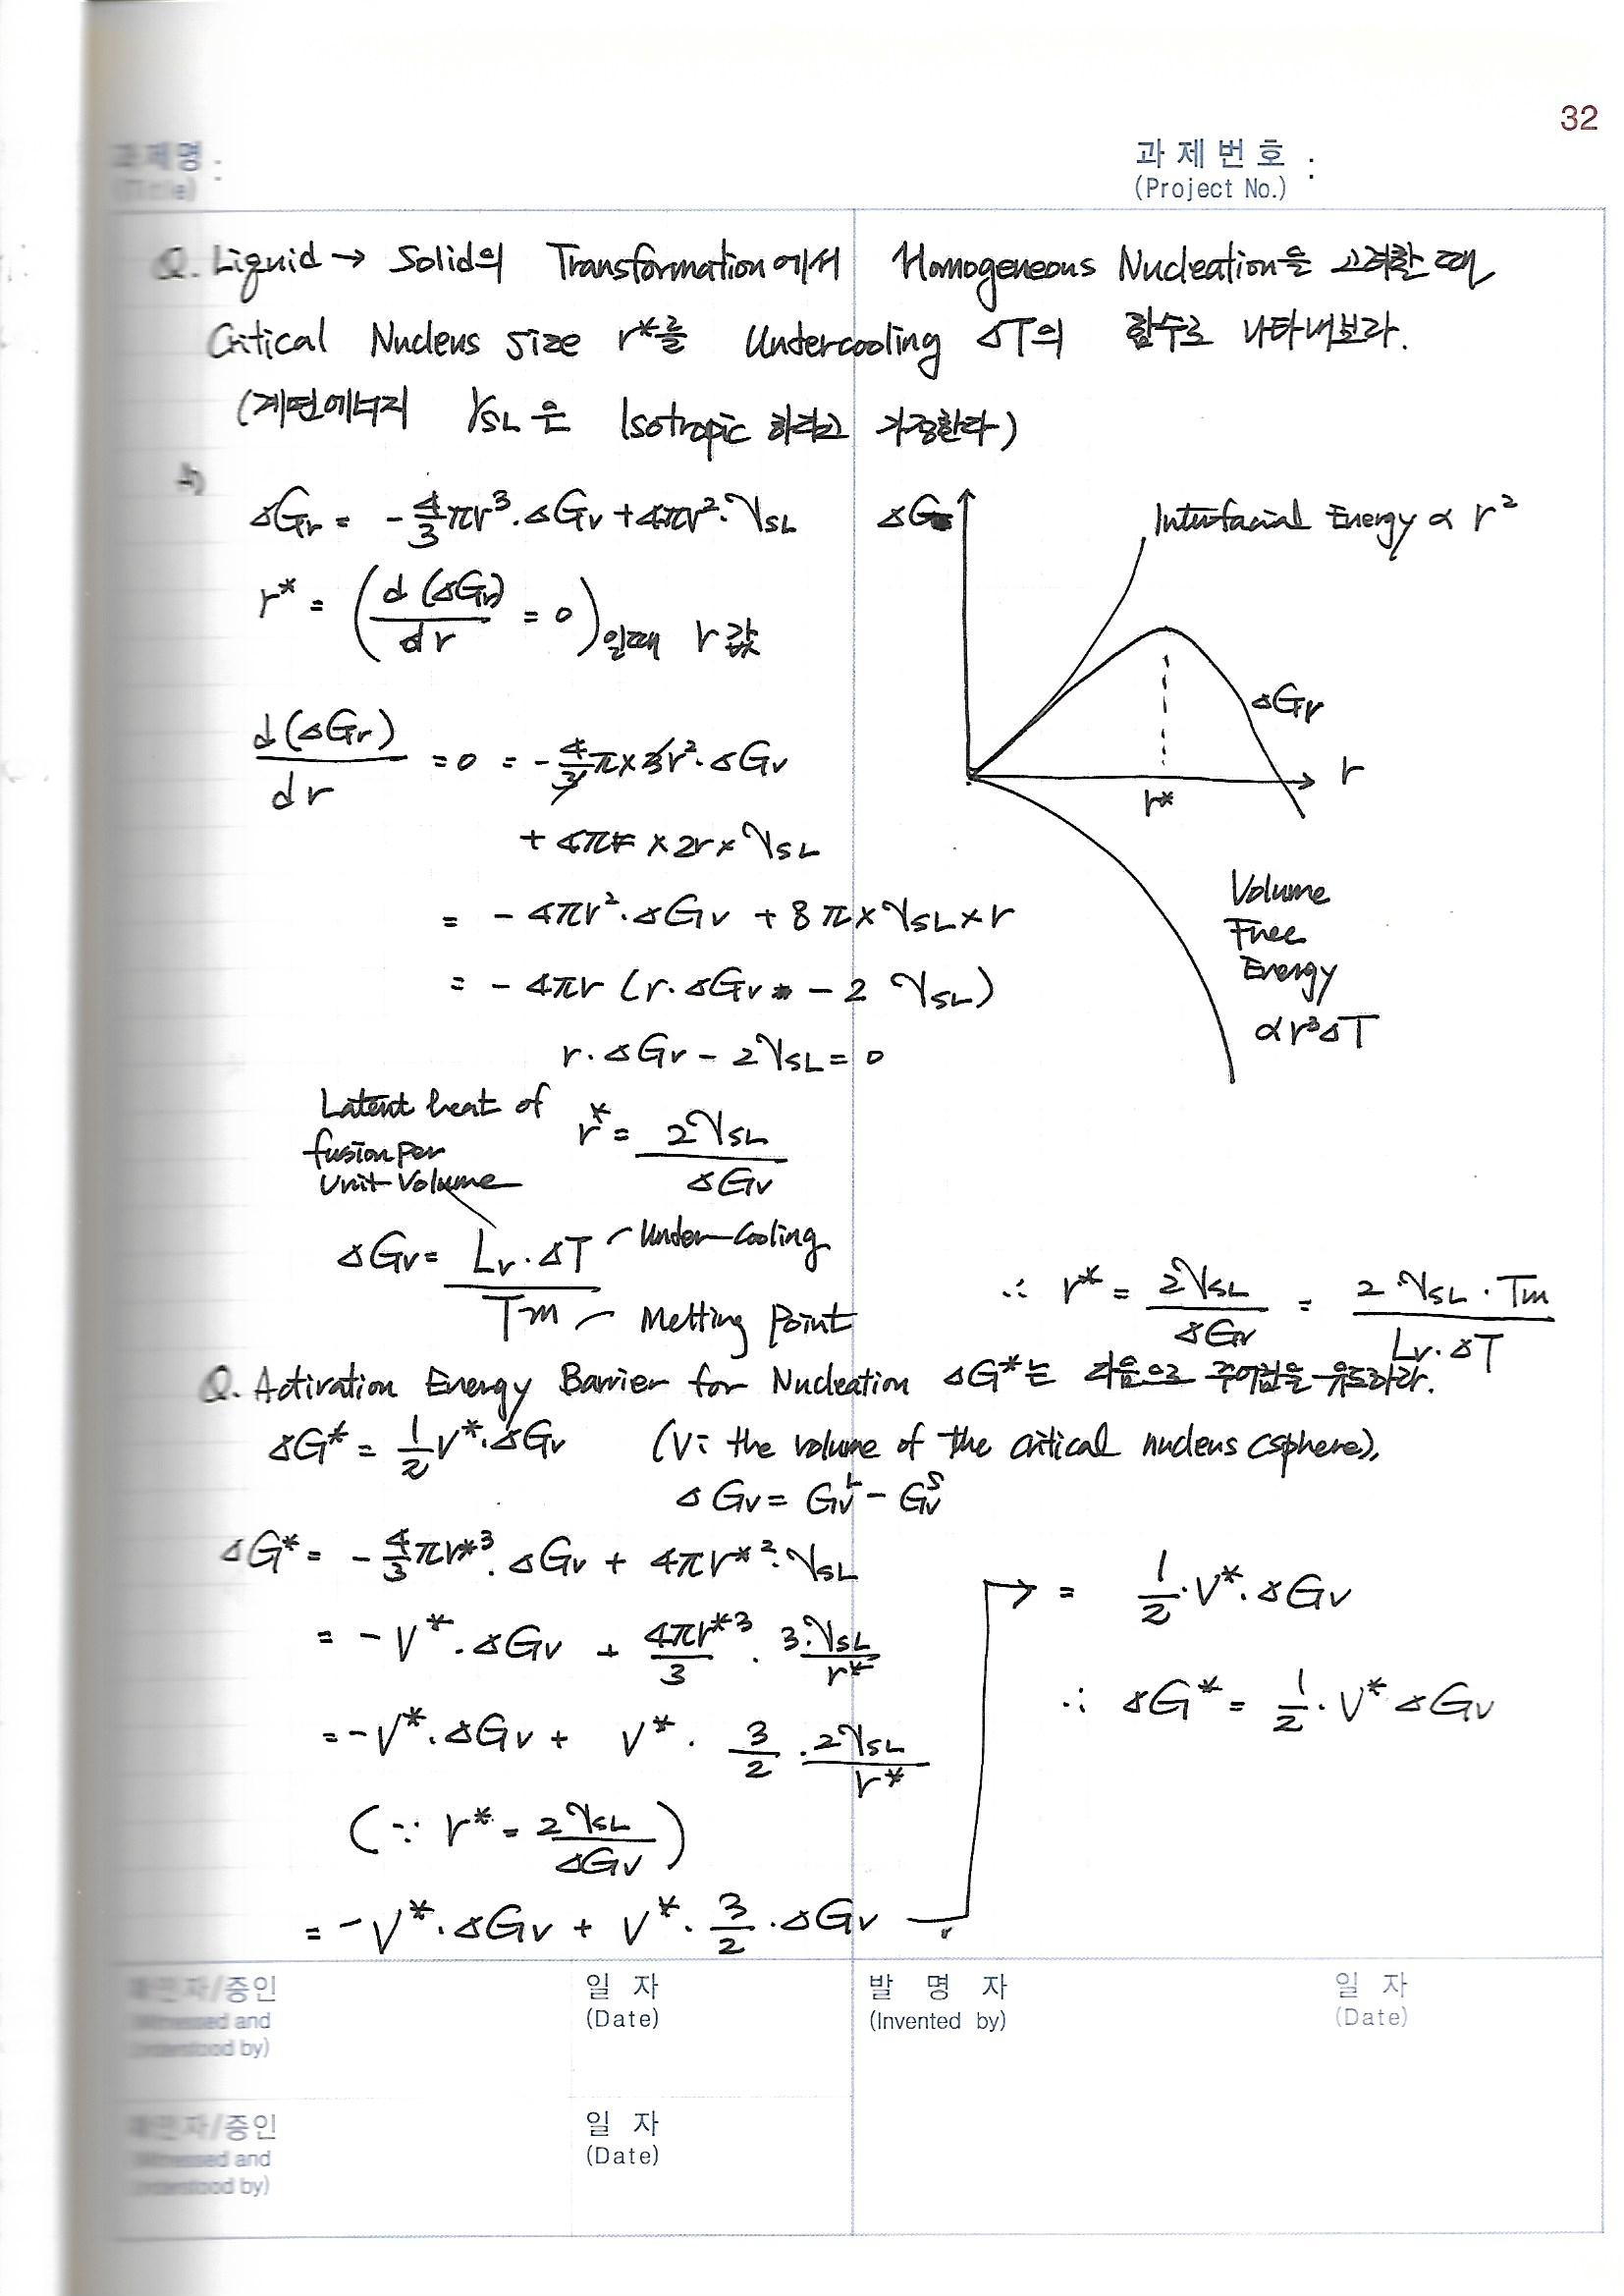 32
과제명 :
(Title)
과제번호 :
(Project No.)
Q. Liquid → Solid의 Transformation에서 Homogeneous Nucleation을 고려할 때
Critical Nucleus size r*를 Undercooling ΔT의 함수로 나타내보라.
(계면에너지 γSL은 Isotropic 하다고 가정한다)
A)
ΔGr = -4/3πr³·ΔGv + 4πr²·γSL
r* = (d(ΔGr)/dr = 0)일때 r값
d(ΔGr)/dr = 0 = -4/3π×3r²·ΔGv
+ 4π × 2r × γSL
= - 4πr²·ΔGv + 8π×γSL×r
= - 4πr (r·ΔGv - 2 γSL)
r·ΔGv - 2γSL = 0
ΔG
Interfacial Energy ∝ r²
ΔGr
r
r*
Volume
Free
Energy
∝ r³ΔT
Latent heat of
fusion per
Unit Volume
r* = 2γSL/ΔGv
ΔGv = Lv·ΔT/Tm
Under-Cooling
Melting Point
∴ r* = 2γSL/ΔGv = 2·γSL·Tm/Lv·ΔT
Q. Activation Energy Barrier for Nucleation ΔG*는 다음으로 주어짐을 유도하라.
ΔG* = 1/2 V*·ΔGv (V: the volume of the critical nucleus (sphere),
ΔGv = Gv^L - Gv^S
ΔG* = -4/3πr*³·ΔGv + 4πr*²·γSL
= -V*·ΔGv + 4πr*³/3 · 3·γSL/r*
= -V*·ΔGv + V* · 3/2 · 2γSL/r*
(∵ r* = 2γSL/ΔGv)
= -V*·ΔGv + V*·3/2·ΔGv
→ = 1/2·V*·ΔGv
∴ ΔG* = 1/2·V*ΔGv
확인자/증인
(Witnessed and
Understood by)
일 자
(Date)
발 명 자
(Invented by)
일 자
(Date)
확인자/증인
(Witnessed and
Understood by)
일 자
(Date)